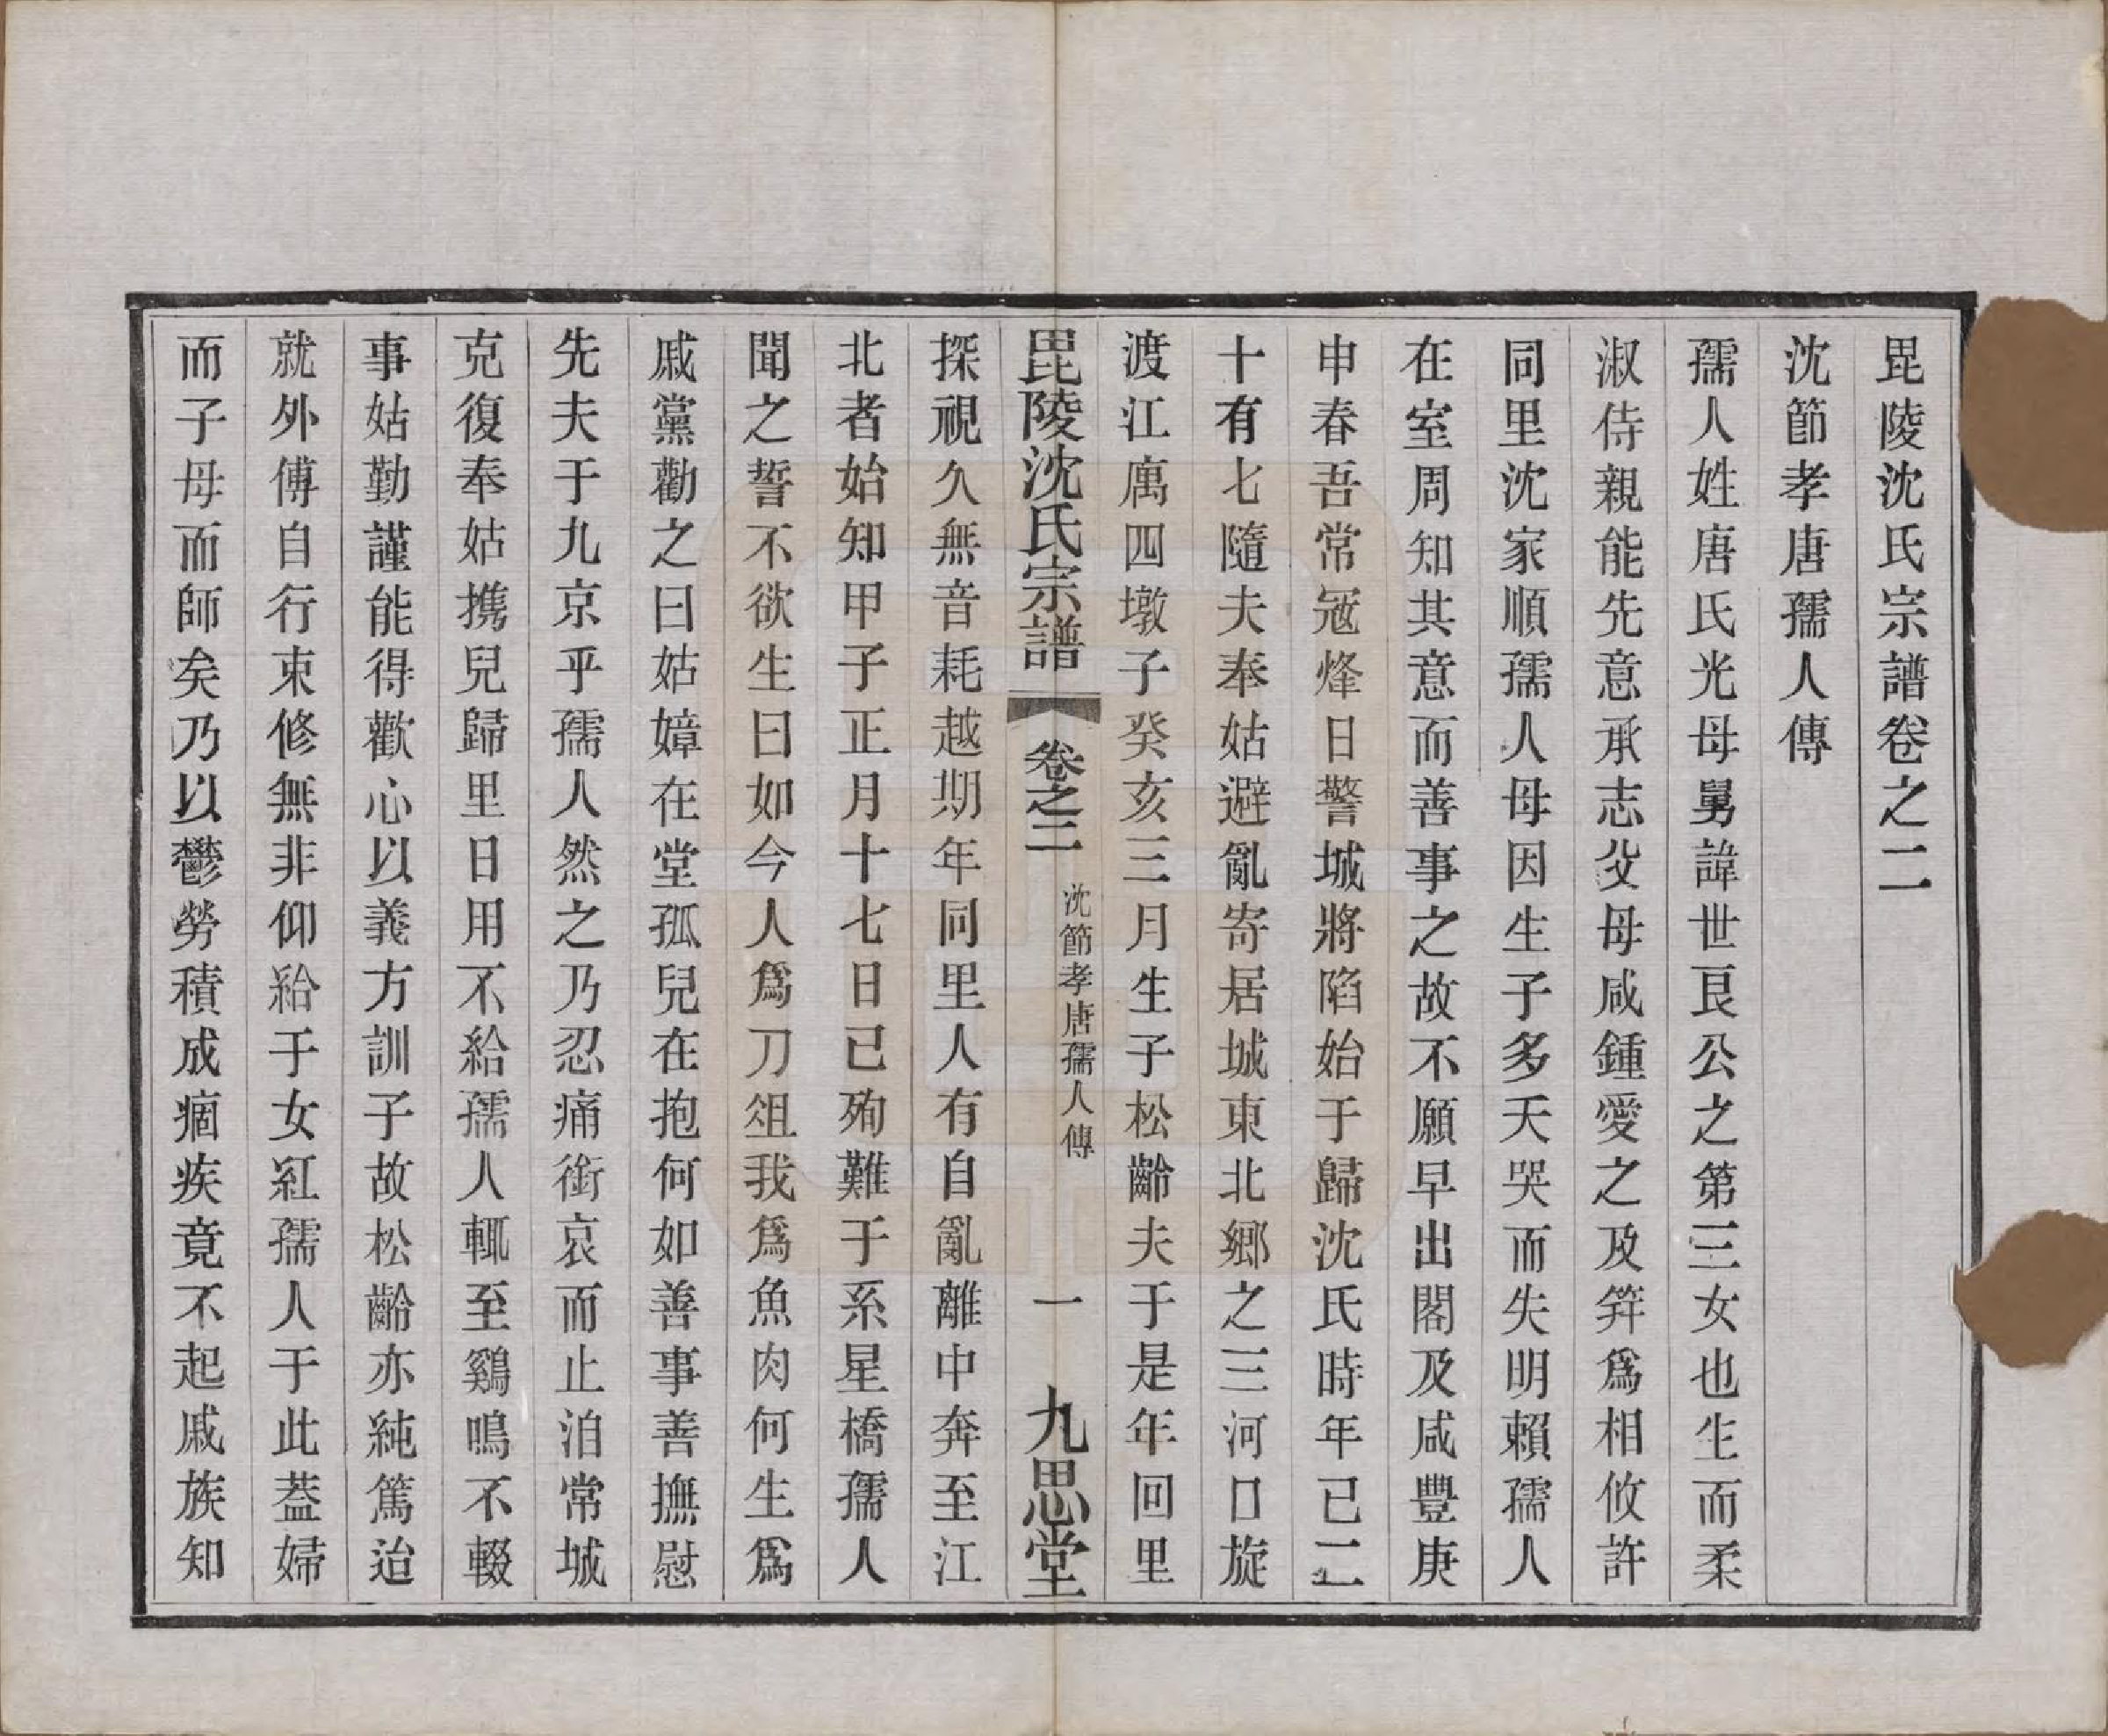 毘陵沈氏宗譜卷之二
沈節孝唐孺人傳
孺人姓唐氏光母舅諱世艮公之第三女也生而柔
淑侍親能先意承志父母咸鍾愛之及笄爲相攸許
同里沈家順孺人母因生子多夭哭而失明賴孺人
在室周知其意而善事之故不願早出閣及咸豐庚
申春吾常冦烽日警城將陷始于歸沈氏時年已二
十有七隨夫奉姑避亂寄居城東北鄉之三河口旋
渡江寓四墩子癸亥三月生子松齡夫于是年回里
毘陵沈氏宗譜 卷之二 沈節孝唐孺人傳 一 九思堂
探視久無音耗越期年同里人有自亂離中奔至江
北者始知甲子正月十七日已殉難于系星橋孺人
聞之誓不欲生曰如今人爲刀俎我爲魚肉何生爲
戚黨勸之曰姑嫜在堂孤兒在抱何如善事善撫慰
先夫于九京乎孺人然之乃忍痛銜哀而止洎常城
克復奉姑携兒歸里日用不給孺人輒至鷄鳴不輟
事姑勤謹能得歡心以義方訓子故松齡亦純篤迨
就外傅自行束修無非仰給于女紅孺人于此葢婦
而子母而師矣乃以鬱勞積成痼疾竟不起戚族知